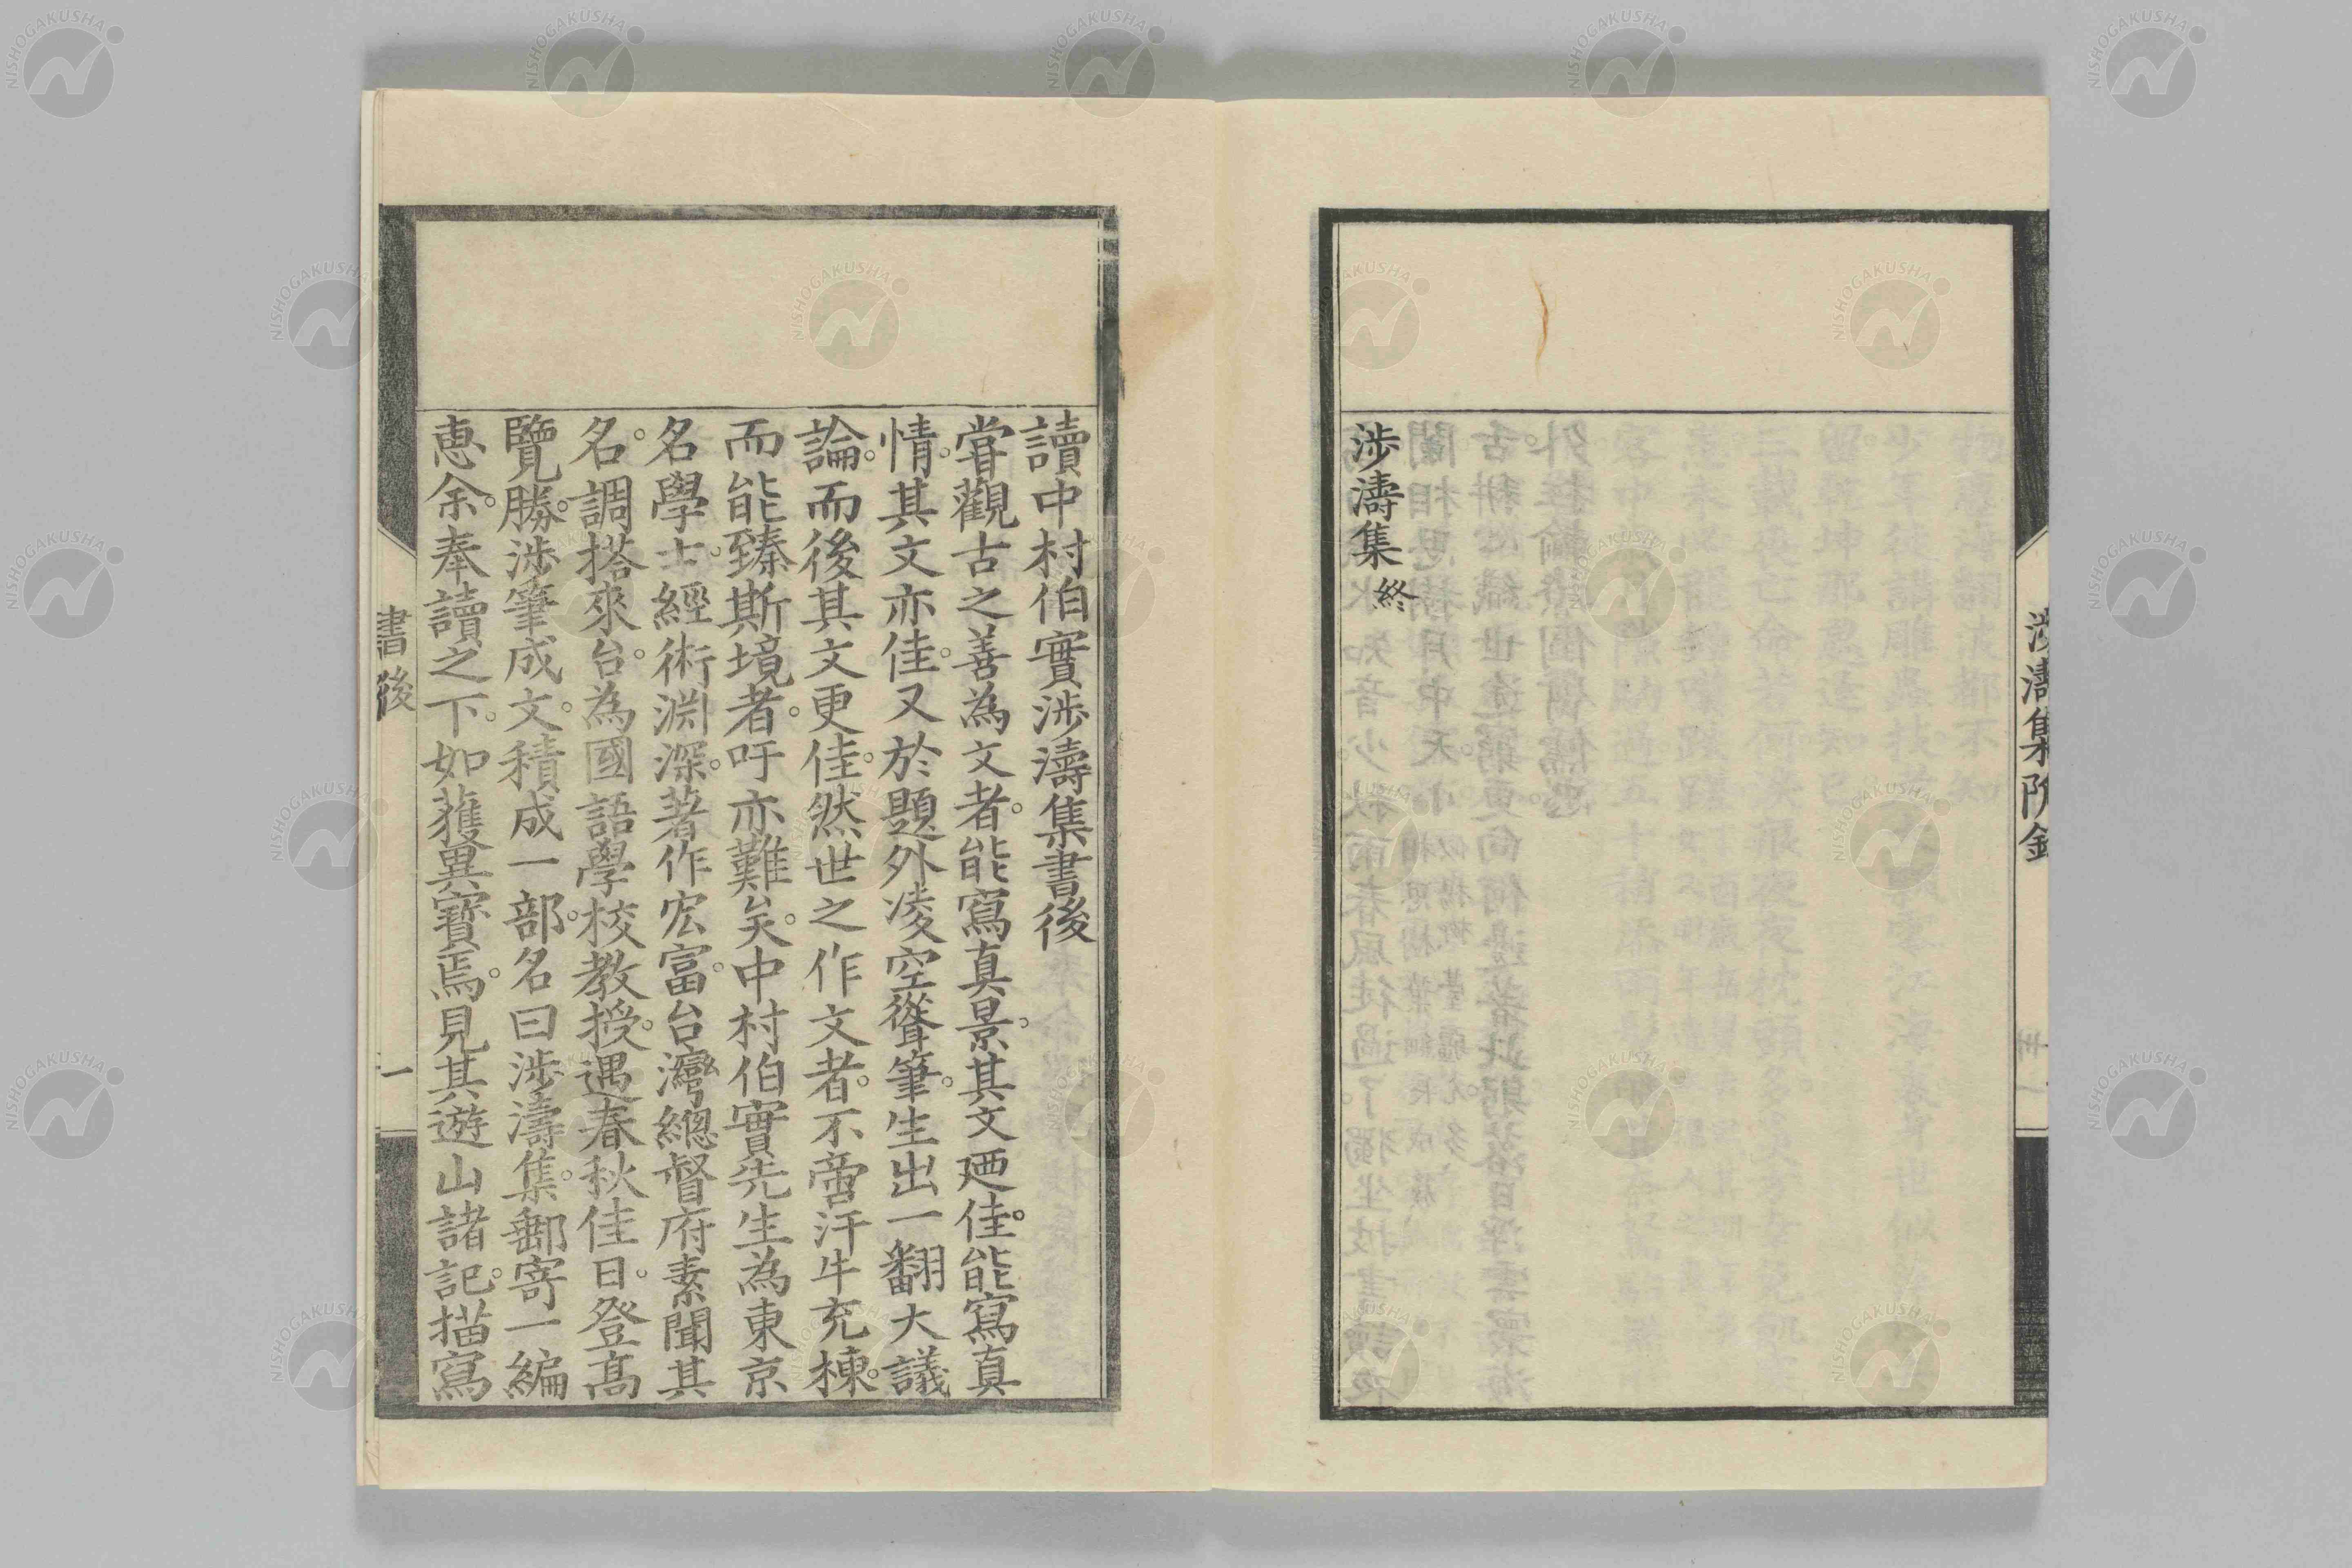 涉濤集附錄
涉濤集終
讀中村伯實涉濤集書後
甞觀古之善為文者。能寫真景。其文廼佳。能寫真
情。其文亦佳。又於題外凌空聳筆。生出一翻大議
論。而後其文更佳。然世之作文者。不啻汗牛充棟。
而能臻斯境者。吁亦難矣。中村伯實先生為東京
名學士。經術淵深。著作宏富。台灣總督府素聞其
名。調搭來台。為國語學校教授。遇春秋佳日。登高
覽勝。涉筆成文。積成一部。名曰涉濤集。郵寄一編
惠余。奉讀之下。如獲異寶焉。見其遊山諸記。描寫
書後
一
NISHOGAKUSHA